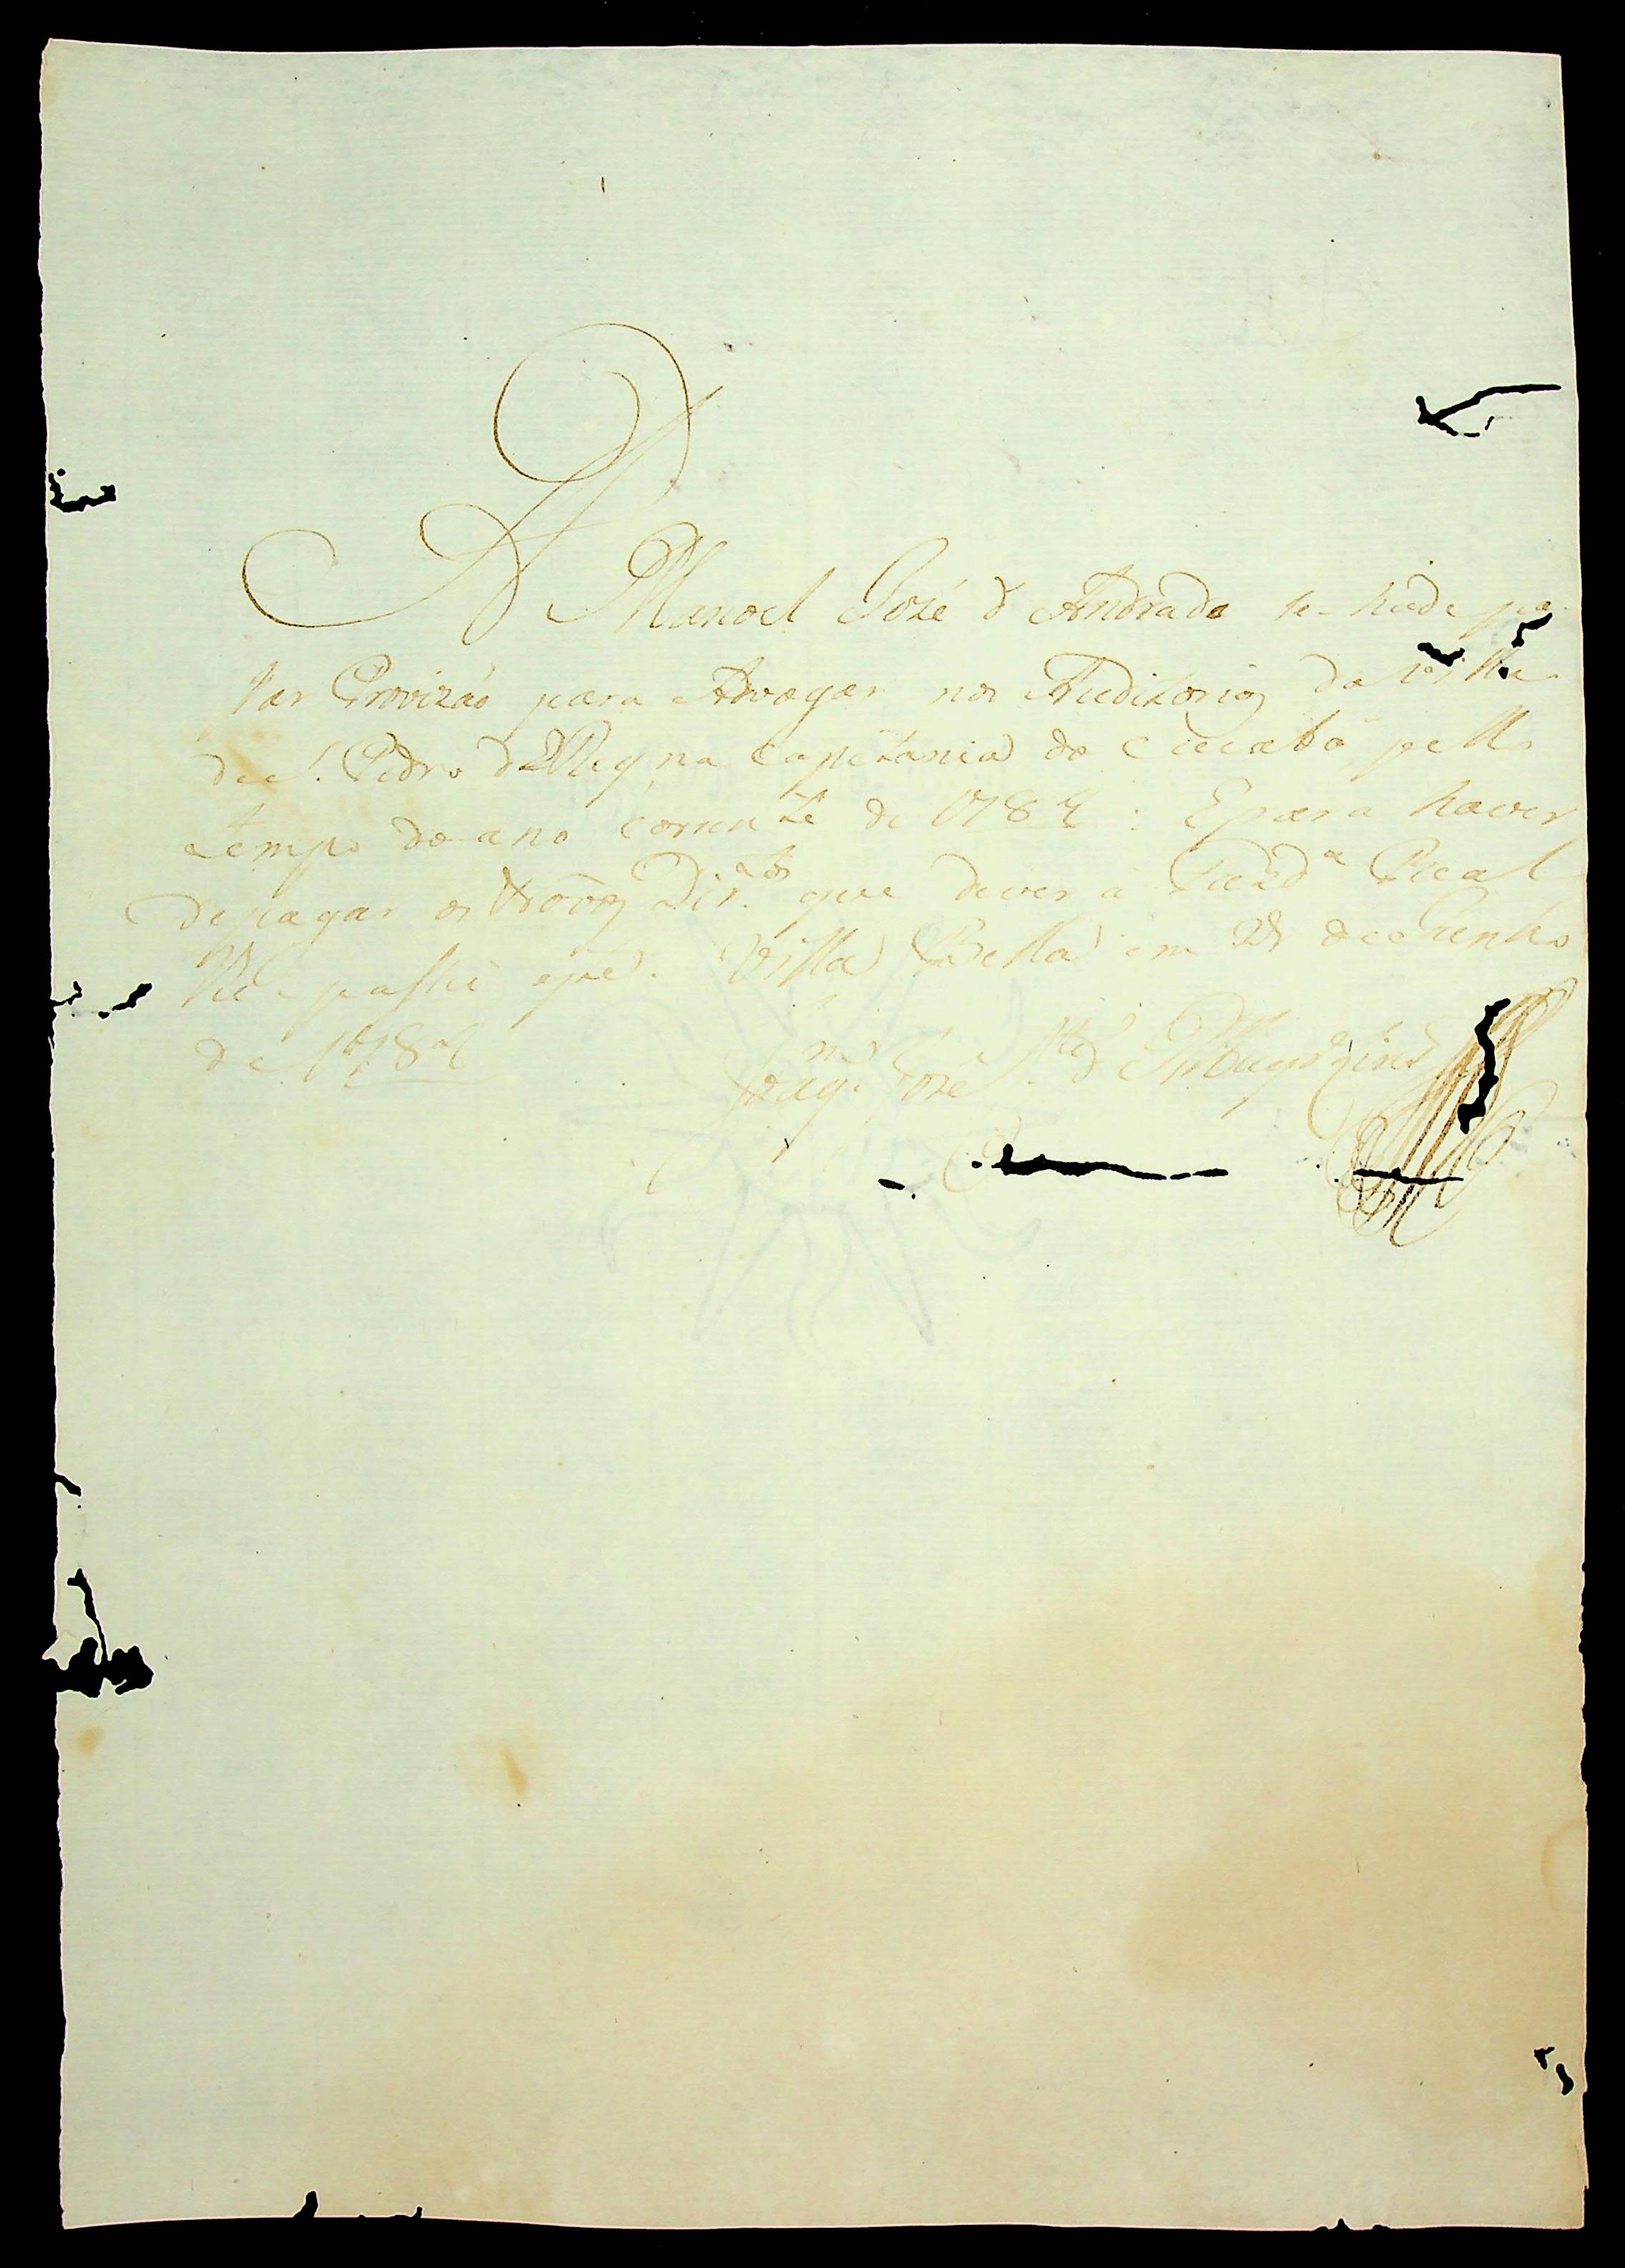 A Manoel José d' Andrade se hade pa
sar Provizaó para Advogar nos Auditorios da Villa
de S. Pedro d'El Rey na Capitania do Cuiabá pello
tempo do ano corrente de 1782: E para haver
de pagar os Novos Dir.tos que dever á Fazd.a Real
lhe passei este. Villa Bella em 28 de Junho
de 1782
José